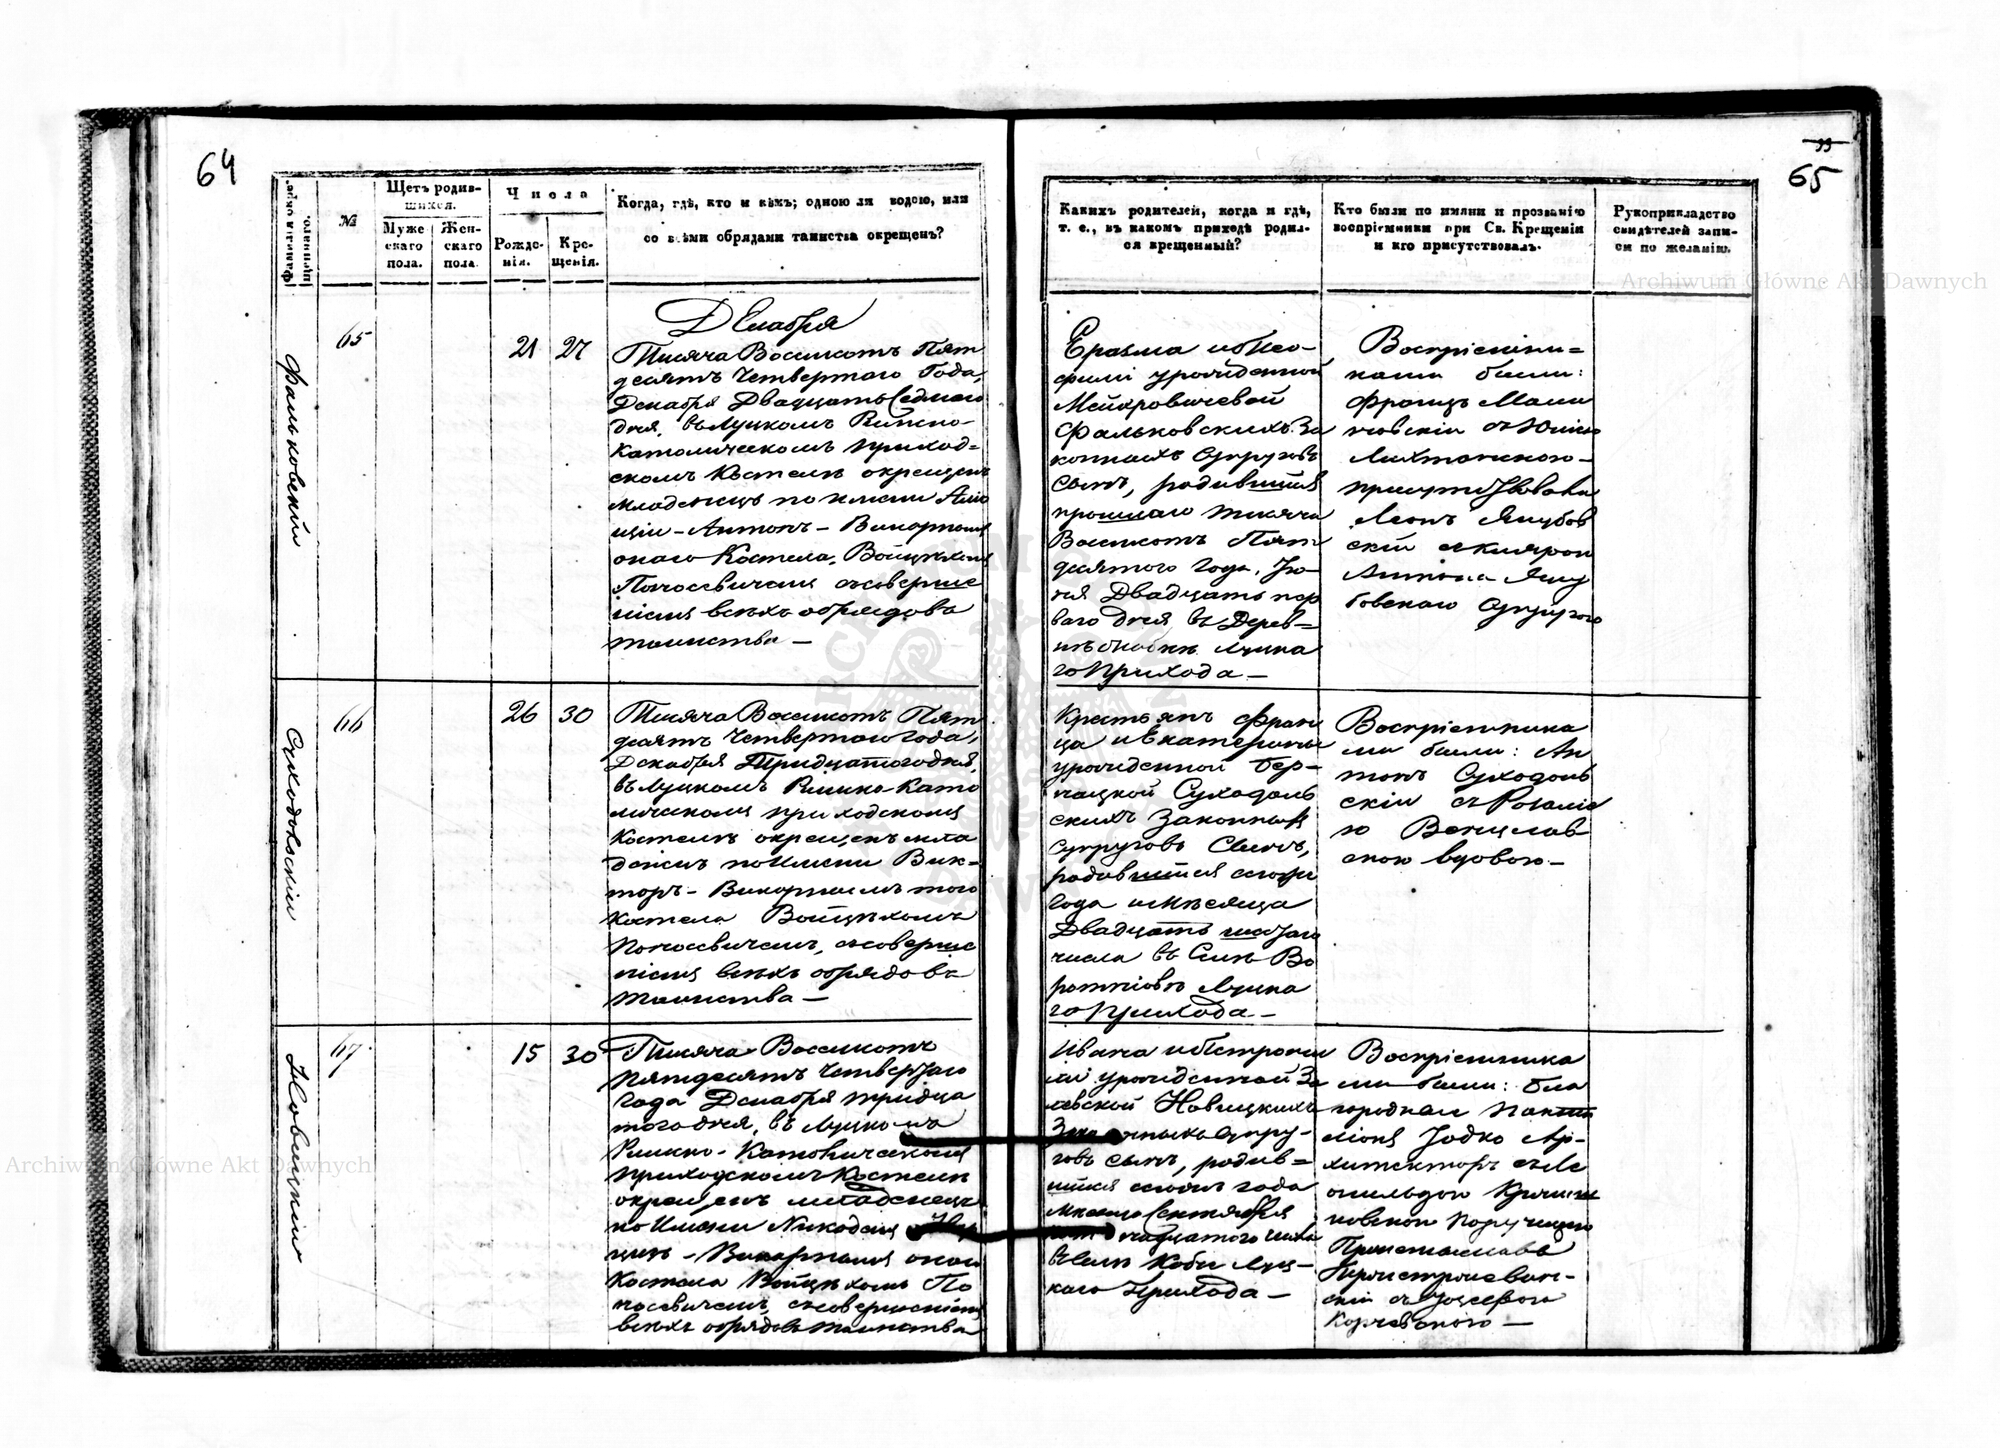 64
65
Фамилія окре-
щеннаго.
№
Щетъ родив-
шихся.
Муже
скаго
пола.
Жен-
скаго
пола.
Числа
Рожде-
нія.
Кре-
щенія.
Когда, гдѣ, кто и кѣмъ; одною ли водою, или
со всѣми обрядами таинства окрещенъ?
Декабря
Фальковскій
65
21 27
Тысяча Восемсотъ Пят
десятъ Четвертаго Года,
Декабря Двадцать Седмаго
дня, въ Луцкомъ Римско-
Католическомъ Приход=
скомъ Костелѣ окрещенъ
младенецъ по имени
Антонъ - Викарнымъ
онаго Костела, Войцѣхомъ
съ соверше
ніемъ всѣхъ обрядовъ
таинства —
Суходольскій
66
26 30
Тысяча Восемсотъ Пят
десятъ Четвертаго года,
Декабря Тридцатого дня,
въ Луцкомъ Римско-Като
лическомъ приходскомъ
Костелѣ окрещенъ мла
денецъ по имени Вик-
торъ - Викарнымъ того
Костела Войцѣхомъ
съ соверше
ніемъ всѣхъ обрядовъ
таинства —
Новицкій
67
15 30
Тысяча Восемсотъ
пятдесятъ четвертаго
года Декабря тридца
того дня, въ Луцкомъ
Римско-Католическомъ
приходскомъ Костелѣ
окрещенъ младенецъ
по имени Никодимъ
Викарнымъ онаго
Костела Войцѣхомъ
съ совершеніемъ
всѣхъ обрядовъ таинства
Какихъ родителей, когда и гдѣ,
т. е., въ какомъ приходѣ родил-
ся крещенный?
Кто были по имяни и прозванію
воспріемники при Св. Крещеніи
и кто присутствовалъ.
Рукоприкладство
свидѣтелей запи-
си по желанію.
Еразма и Тео-
филіи урожденной
Фальковскихъ За
конныхъ Супруговъ
Сынъ, родившійся
прошлаго тысяча
Восемсотъ Пят
десятого года, Iю-
ля Двадцать пер
ваго дня въ Дерев-
нѣ Луцка
го Прихода —
Воспріемни=
ками были:
Францъ
съ
присутствовали
Леонъ Якубов
скій съ
Антона Яку
бовскаго Супругою
Крестьянъ Фран
ца и Екатерины
урожденной
Суходоль
скихъ Законныхъ
Супруговъ Сынъ,
родившійся сего
года и Мѣсяца
Двадцать шестаго
числа въ Селѣ Во
ротнiовѣ Луцка
го Прихода —
Воспріемника
ми были: Ан
тонъ Суходоль
скій съ Розалі
ею
вдовою —
Ивана и Петроне
ли урожденной За
левской Новицкихъ
Законныхъ Супру-
говъ сынъ, родив=
шійся сего года
Мѣсяца Сентября
пятнадцатого числа
въ Селѣ Луц-
каго Прихода —
Воспріемника
ми были: бла
городные
Iодко Ар-
хитекторъ съ Ле
опильдою
Порутчицею
съ Iозефою
Archiwum Główne Akt Dawnych
Archiwum Główne Akt Dawnych
ARCHIWUM GŁÓWNE AKT DAWNYCH